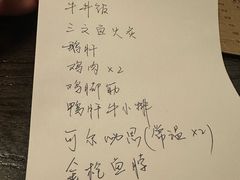 牛丼饭
三文鱼火炙
鹅肝
鸡肉 ×2
鸡脚筋
鸭肝牛小排
可尔必思(常温×2)
金枪鱼脖